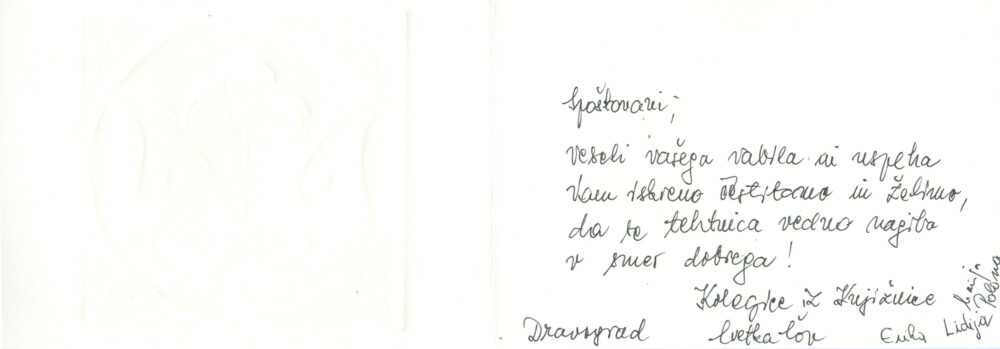 Spoštovani,
veseli vašega vabila in uspeha
Vam iskreno čestitamo in želimo,
da se tehtnica vedno nagiba
v smer dobrega!
Kolegice iz Knjižnice
Dravograd Cvetka Erika Lidija Polona